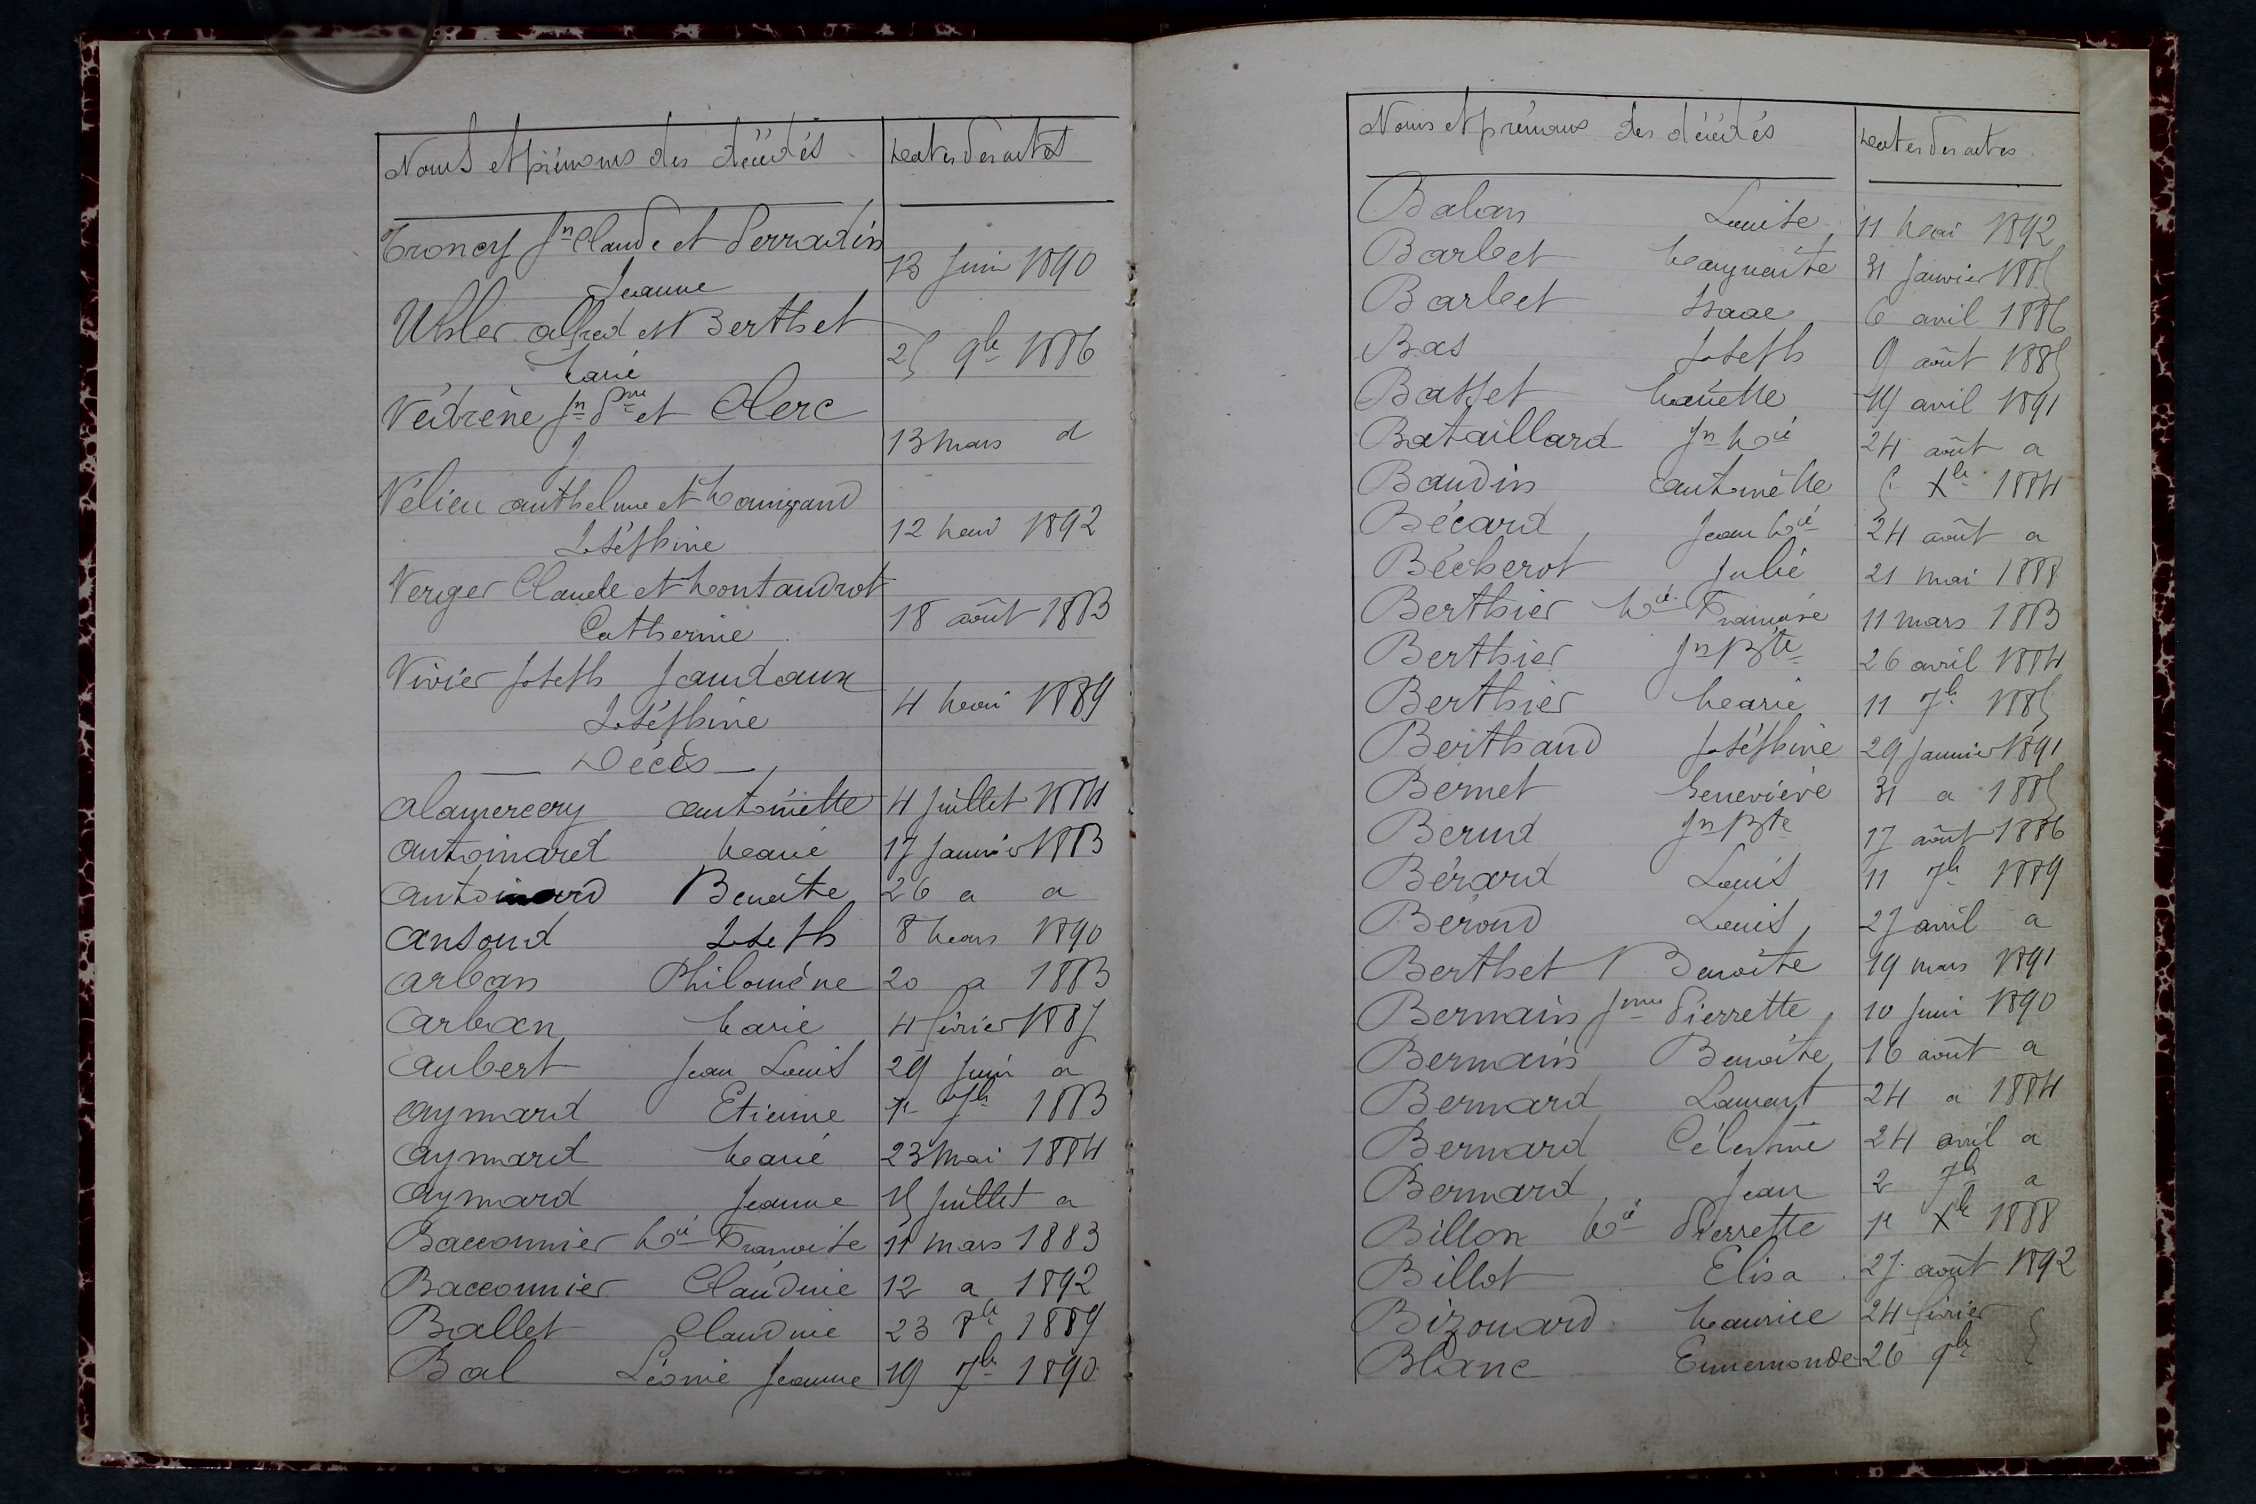 Noms et prénoms des décédés Dates des actes
Troncy Jn Claude et Perradin
Jeanne 13 Juin 1890
Uhler alfred et Berthet
Marie 25 9bre 1886
Védrène Jn Pre et Clerc
J 13 mars d
Vélieu anthelme et
Joséphine 12 mai 1892
Verger Claude et Montandrot
Catherine 18 août 1883
Vivier Joseph Jandaux
Joséphine 4 mai 1889
Décès
alamercery antoinette 4 Juillet 1884
antoinard Marie 17 Janvier 1883
antoinard Benoite 26 a a
ansoud Joseph 8 mars 1890
arban Philomène 20 a 1883
arban Marie 4 février 1887
aubert Jean Louis 29 Juin a
aymard Etienne 1er 7bre 1883
aymard Marie 23 mai 1884
aymard Jeanne 15 Juillet a
Bacconnier Mie Françoise 11 mars 1883
Bacconnier Claudine 12 a 1892
Ballet Claudine 23 8bre 1889
Bal Léonie Jeanne 19 7bre 1890
Noms et prénoms des décédés Dates des actes
Balan Louise 11 mai 1892
Barbet Marguerite 31 Janvier 1885
Barbet Isaac 6 avril 1886
Bas Joseph 9 août 1885
Basset Mariette 19 avril 1891
Bataillard Jn Mie 24 août a
Baudin antoinette 5 Xbre 1884
Bécard Jean Mie 24 août a
Bécherot Julie 21 mai 1888
Berthier Mie Françoise 11 mars 1883
Berthier Jn Bte 26 avril 1884
Berthier Marie 11 7bre 1885
Berthaud Joséphine 29 Janvier 1891
Bernet Geneviève 31 a 1885
Bérud Jn Bte 17 août 1886
Bérard Louis 11 7bre 1889
Béroud Louis 27 avril a
Berthet Benoite 19 mars 1891
Bernain Jnne Pierrette 10 Juin 1890
Bernain Benoite 16 août a
Bernard Laurent 24 a 1884
Bernard Célestine 24 avril a
Bernard Jean 2 7bre a
Billon Mie Pierrette 1er Xbre 1888
Billot Elisa 27 août 1892
Bizouard Maurice 24 février
Blanc Ennemonde 26 9bre